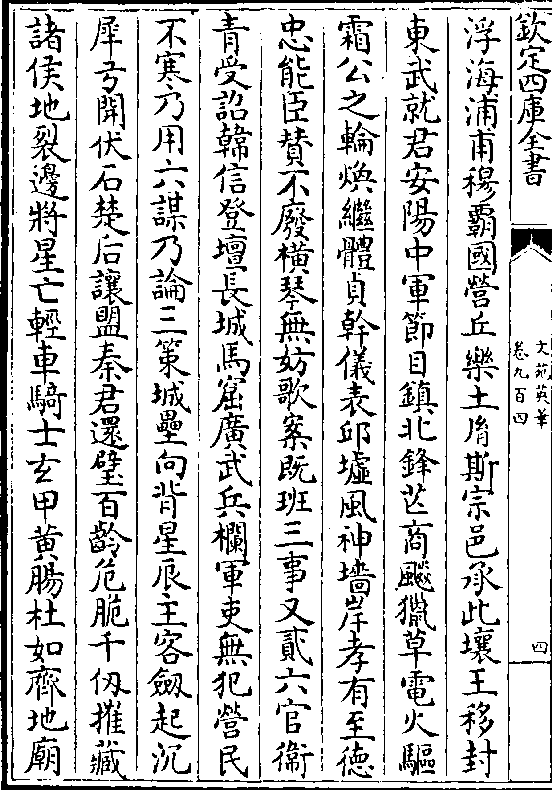 欽定四庫全書
文苑英華
卷九百四
四
浮海浦甫穆霸國營丘樂土胥斯宗邑承此壤王移封
東武就君安陽中軍節目鎮北鋒芒商飈獵草電火驅
霜公之輪煥繼體貞幹儀表邱墟風神墻岸孝有至德
忠能臣贊不廢横琴無妨歌案既班三事又貳六官衞
青受詔韓信登壇長城馬窟廣武兵欄軍吏無犯營民
不寒乃用六謀乃論三策城壘向背星辰主客劔起沉
犀弓開伏石楚后讓盟秦君還璧百齡危脆千仭摧藏
諸侯地裂邊將星亡輕車騎士玄甲黄腸杜如齊地廟